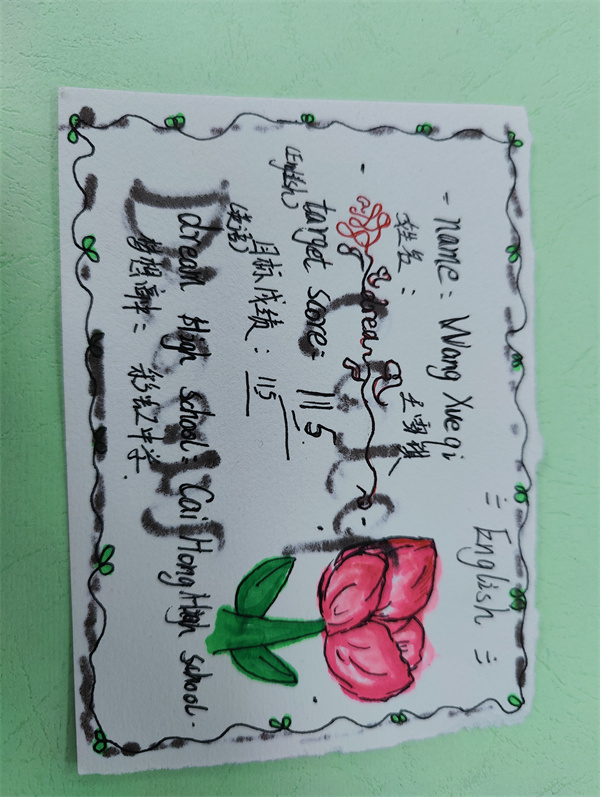 = English =
- name: Wang Xueqi
姓名:
dream
target score: 115
(English)
目标成绩: 115
(英语)
dream High school: Cai Hong High school.
梦想高中: 彩虹中学